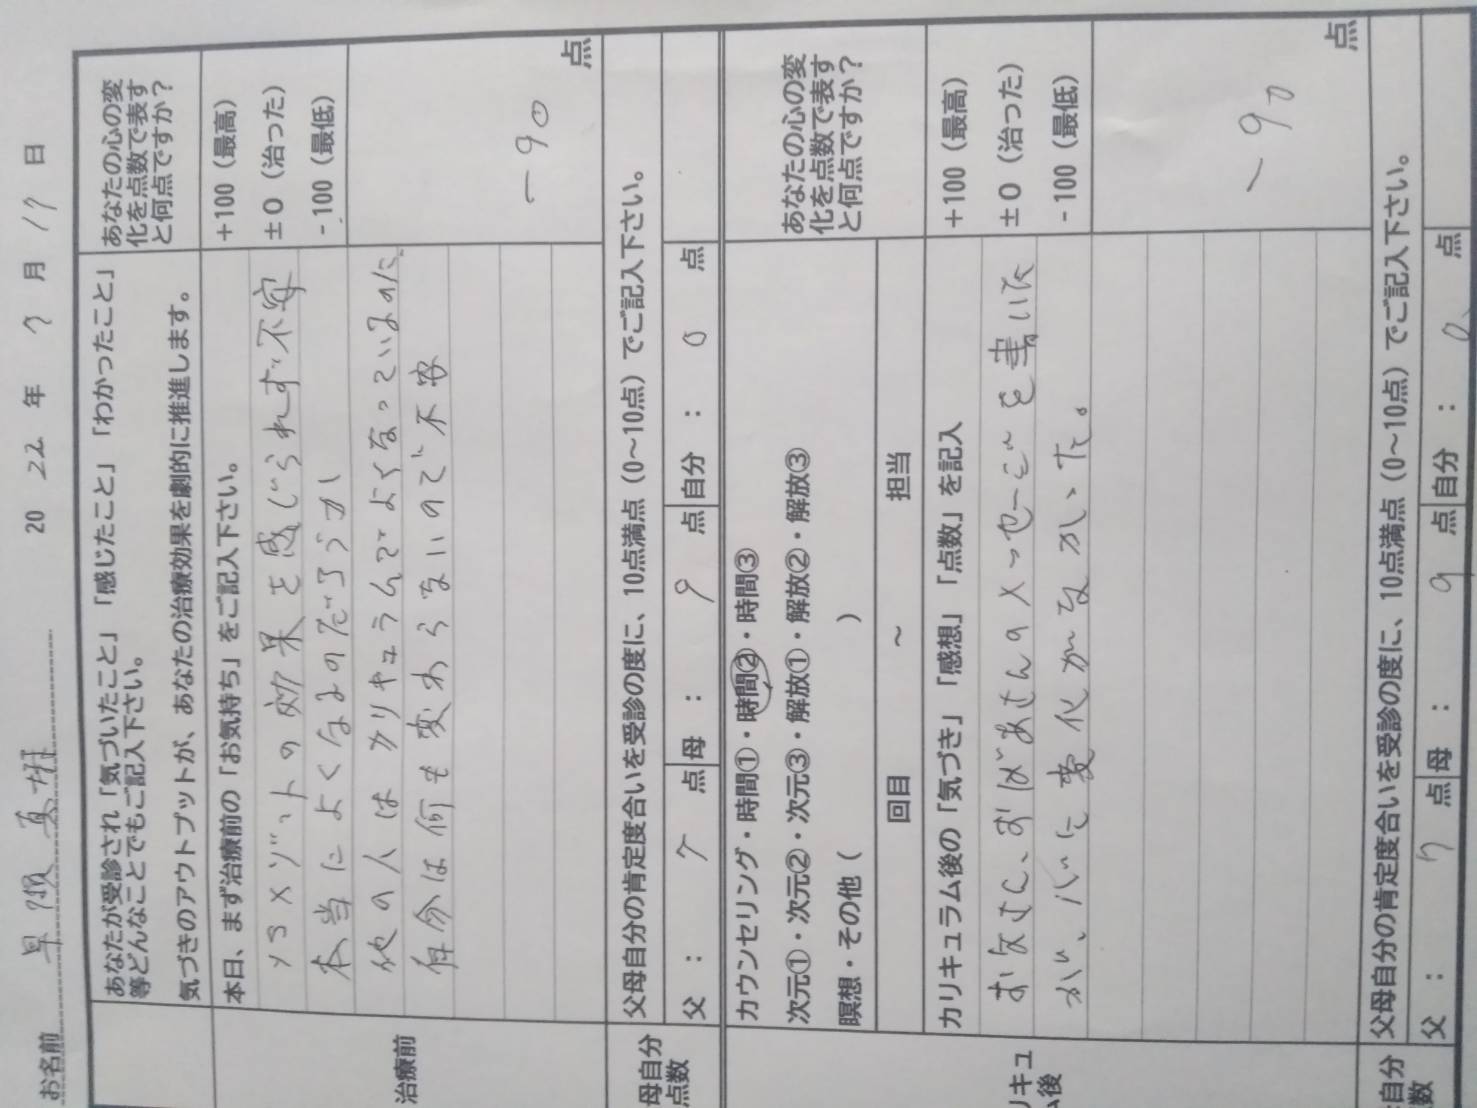 お名前 早 真
20 22 年 7 月 19 日
あなたが受診され「気づいたこと」「感じたこと」「わかったこと」
等どんなことでもご記入下さい。
気づきのアウトプットが、あなたの治療効果を劇的に推進します。
あなたの心の変
化を点数で表す
と何点ですか？
治療前
本日、まず治療前の「お気持ち」をご記入下さい。
メソットの効果を感じられず不安
本当によくなるのだろうか
他の人はカリキュラムでよくなっているのに
自分は何も変わらないので不安
+100（最高）
±０（治った）
-100（最低）
-90
点
母自分
点数
父母自分の肯定度合いを受診の度に、10点満点（0～10点）でご記入下さい。
父 ： 7 点 母 ： 9 点 自分 ： 0 点
カウンセリング・時間①・時間②・時間③
次元①・次元②・次元③・解放①・解放②・解放③
瞑想・その他（ ）
回目 ～ 担当
あなたの心の変
化を点数で表す
と何点ですか？
リキュ
ム後
カリキュラム後の「気づき」「感想」「点数」を記入
お父さん、おばあさんのメッセージを書いた
が、に変化がなかった。
+100（最高）
±０（治った）
-100（最低）
-90
点
自分
数
父母自分の肯定度合いを受診の度に、10点満点（0～10点）でご記入下さい。
父 ： 7 点 母 ： 9 点 自分 ： 0 点